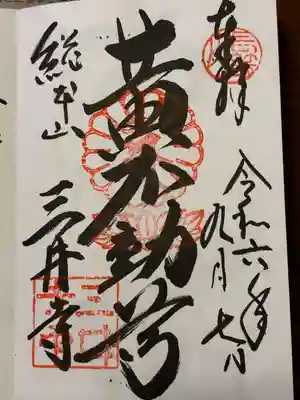 奉拝
令和六年
九月七日
黄不動尊
総本山
三井寺